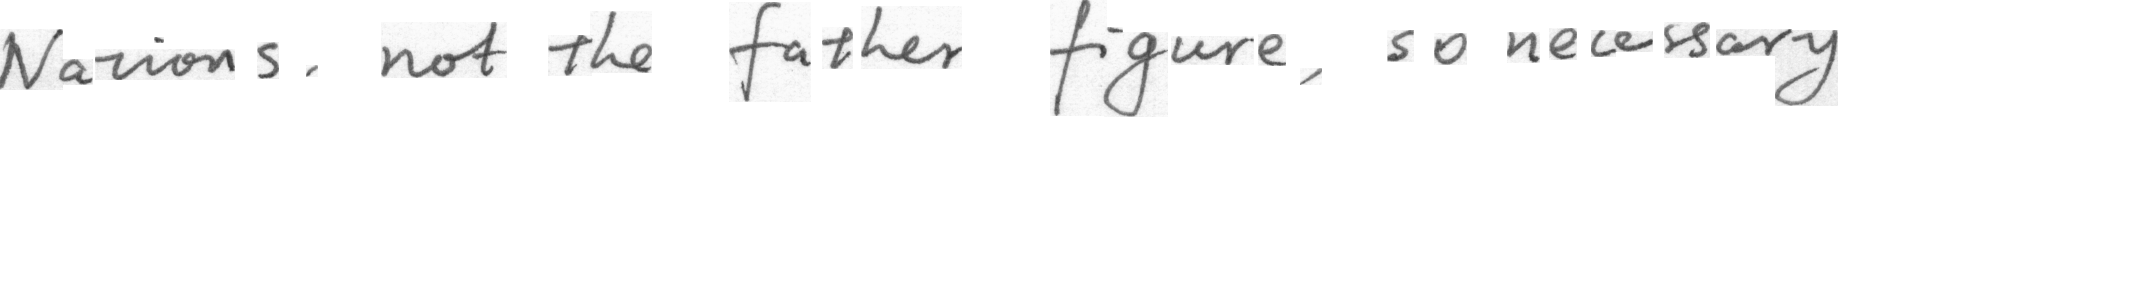 Nations, not the father figure, so necessary